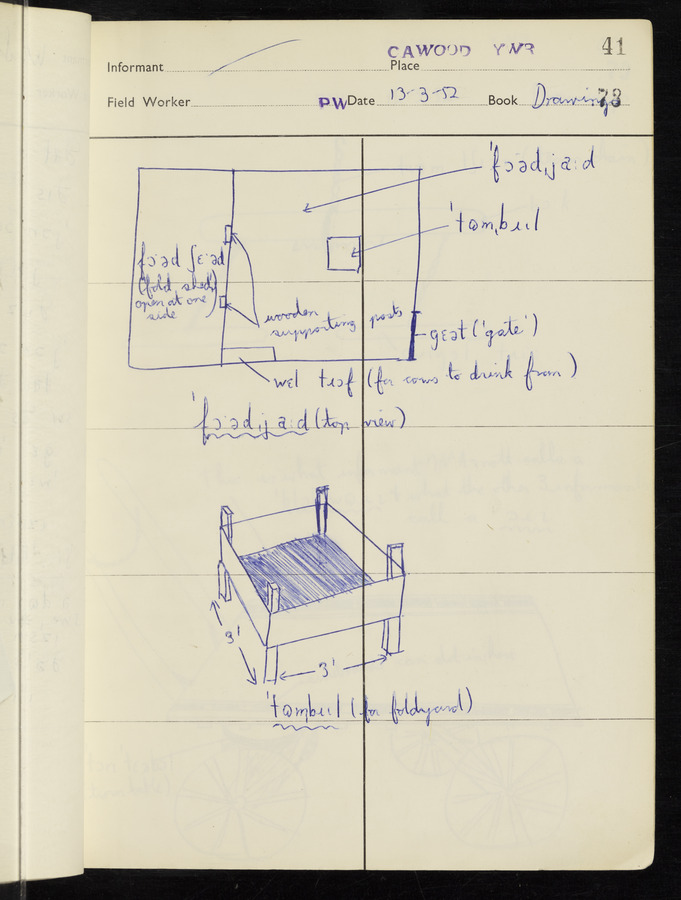 CAWOOD YNR
41
Informant
Place
Field Worker
PW
Date 13-3-52
Book Drawings
73
ˈfɔəd,ja:d
ˈtʊm,bɪl
fɔ:əd ʃɛ:əd
(fold shed,
open at one
side)
wooden
supporting posts
gɛət ('gate')
wɛl tɪəf (for cows to drink from)
ˈfɔ:əd,ja:d (top view)
3'
3'
(for foldyard)